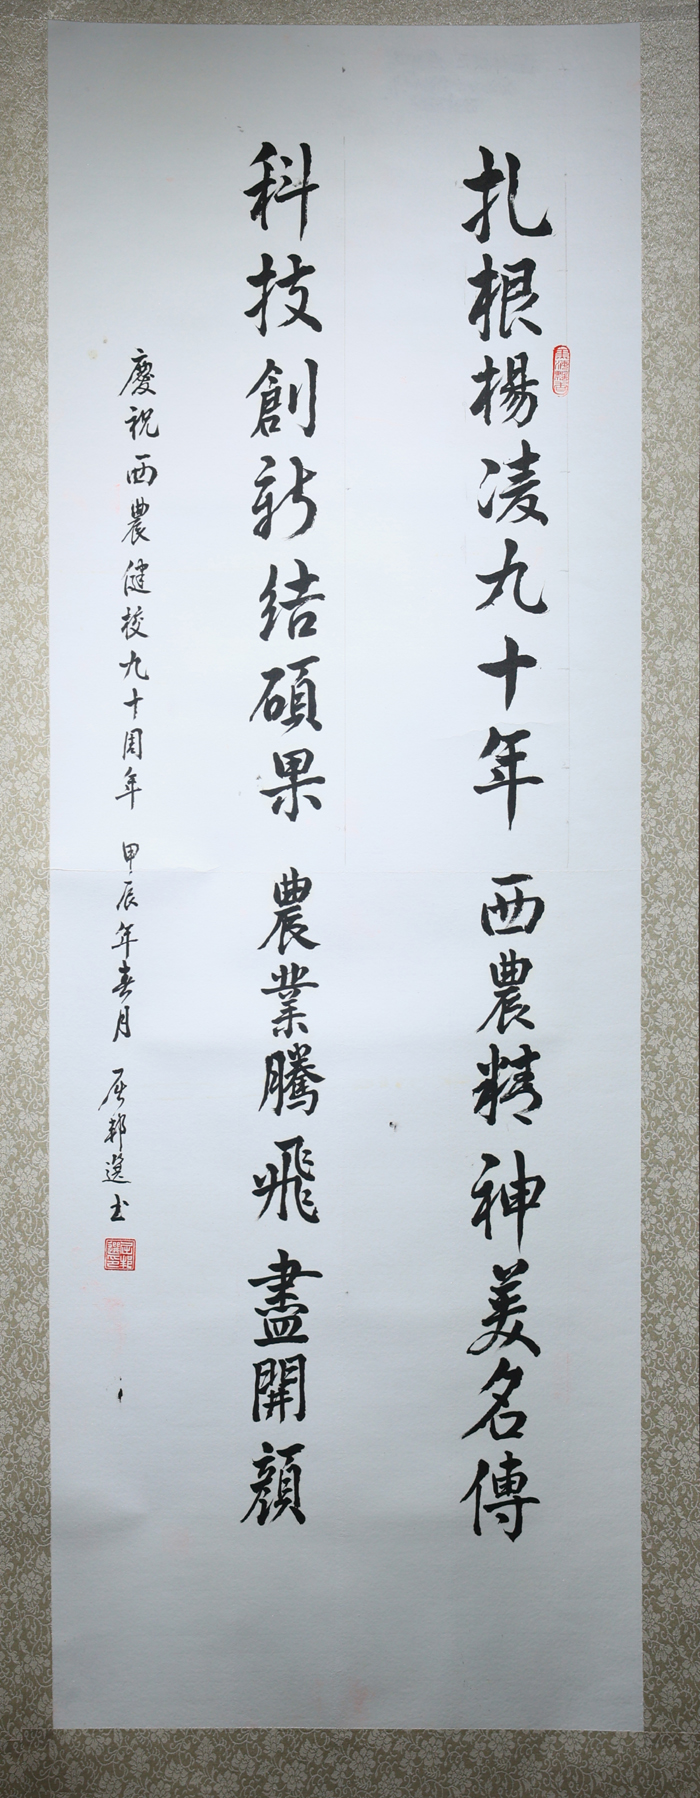 扎根楊凌九十年 西農精神美名傳
科技創新結碩果 農業騰飛盡開顏
慶祝西農健校九十周年 甲辰年春月 屈邦選書